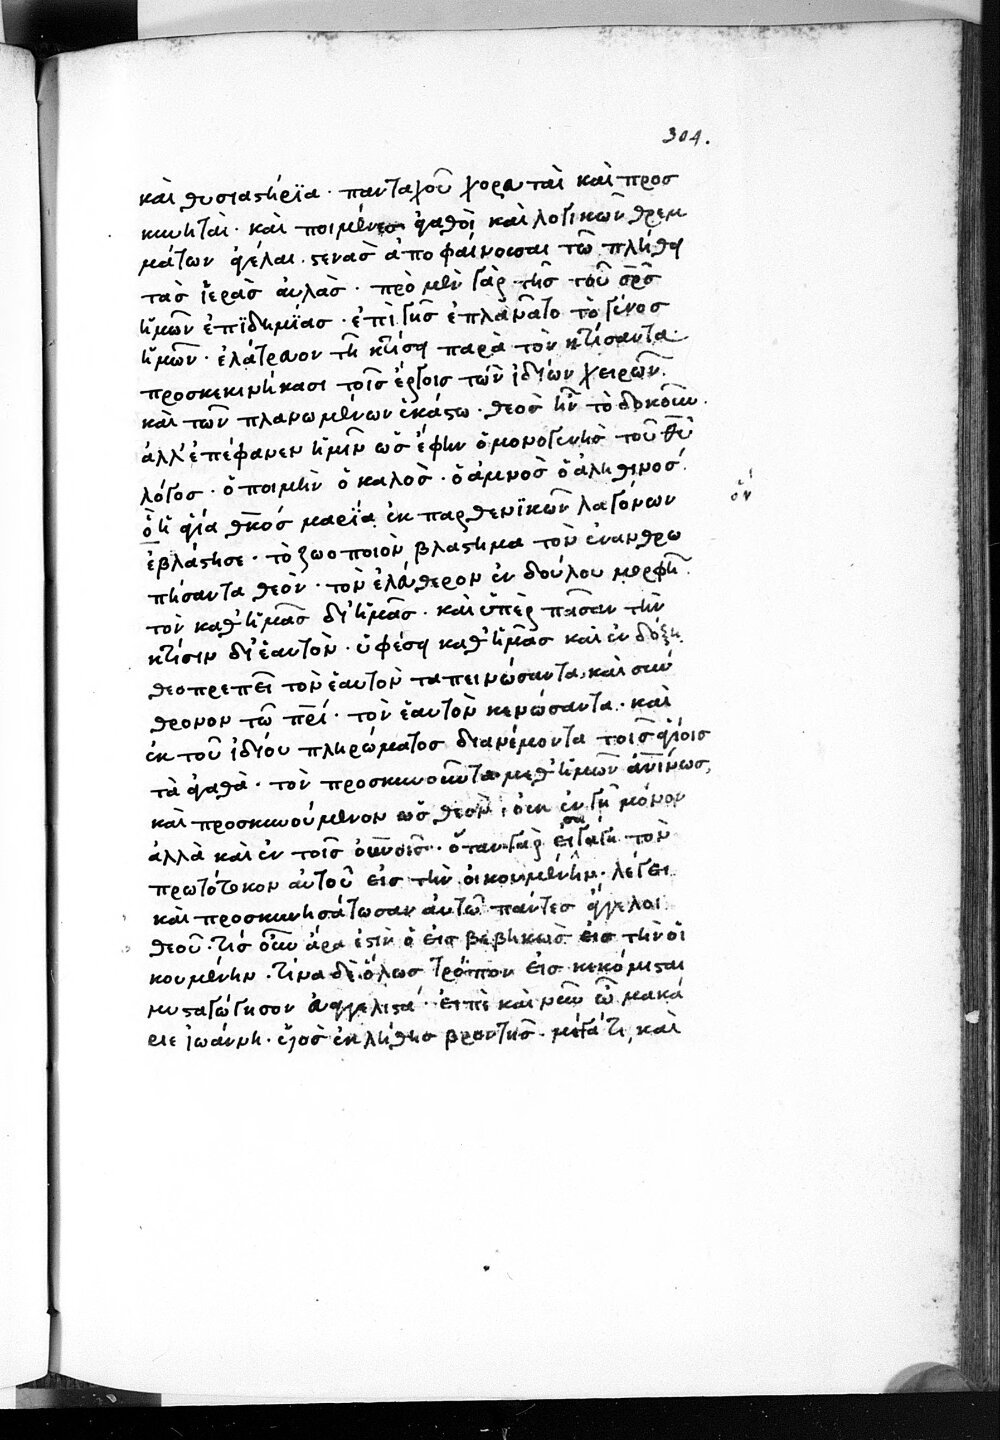 304.
καὶ θυσιαστήρϊα · πανταχοῦ χορευταὶ καὶ προσ
κυνηταί · καὶ ποιμένες ἀγαθοὶ καὶ λογικῶν θρεμ
μάτων ἀγέλαι · στενὰσ ἀποφαίνουσαι τῶ πλήθει
τὰσ ἱερὰσ αὐλὰσ · πρὸ μὲν γὰρ τῆσ τοῦ σρ̅σ
ἡμῶν ἐπϊδημίασ · ἐπὶ γῆσ ἐπλανᾶτο τὸ γένοσ
ἡμῶν · ἐλάτρευον τῆ κτίσει παρὰ τὸν κτίσαντα ·
προσκεκινήκασι τοῖσ ἔργοισ τῶν ἰδίων χειρῶν ·
καὶ τῶν πλανωμένων ἑκάστω · θεὸσ ἦν τὸ δοκοῦν ·
ἀλλ' ἐπέφανεν ἡμῖν ὡσ ἔφην ὁ μονογενὴσ τοῦ θ̅υ̅
λόγοσ · ὁ ποιμὴν ὁ καλὸσ · ὁ ἀμνὸσ ὁ ἀληθινόσ ·
ὅτι ἁγία θ̅κόσ μαρία ἐκ παρθενϊκῶν λαγόνων
ὃν
ἐβλάστησε · τὸ ζωοποιὸν βλάστημα τὸν ἐνανθρω
πήσαντα θεὸν · τὸν ἐλεύθερον ἐν δούλου μορφῆ ·
τὸν καθ' ἡμᾶσ δι' ἡμᾶσ · καὶ ὑπὲρ πᾶσαν τὴν
κτίσιν δι' ἑαυτὸν · ὑφέσει καθ' ἡμᾶσ καὶ ἐν δόξη
θεοπρεπεῖ τὸν ἑαυτὸν ταπεινώσαντα καὶ σύν
θρονον τῶ π̅ρί · τὸν ἑαυτὸν κενώσαντα · καὶ
ἐκ τοῦ ἰδίου πληρώματοσ διανέμοντα τοῖσ ἁγίοισ
τὰ ἀγαθὰ · τὸν προσκυνοῦντα μεθ' ἡμῶν ἀν̅ίνωσ,
καὶ προσκυνούμενον ὡσ θεὸν · οὐκ ἐν γῆ μόνον
ἀλλὰ καὶ ἐν τοῖσ οὐ̅νοῖσ · ὅταν γὰρ εἰσαγάγη τὸν
πρωτότοκον αὐτοῦ εἰσ τὴν οἰκουμένην · λέγει
καὶ προσκυνησάτωσαν αὐτῶ πάντεσ ἄγγελοι
θεοῦ · τίσ οὖν ἄρα ἐστὶν ὁ εἰσβεβηκὼσ εἰσ τὴν οἰ
κουμένην · τίνα δὲ ὅλωσ τρόπον εἰσκεκόμισται
μυσταγώγησον εὐαγγελιστά · εἰπὲ καὶ νῦν ὦ μακά
ριε ἰωάννη · υἱὸσ ἐκλήθησ βροντῆσ · μέγα τι, καὶ